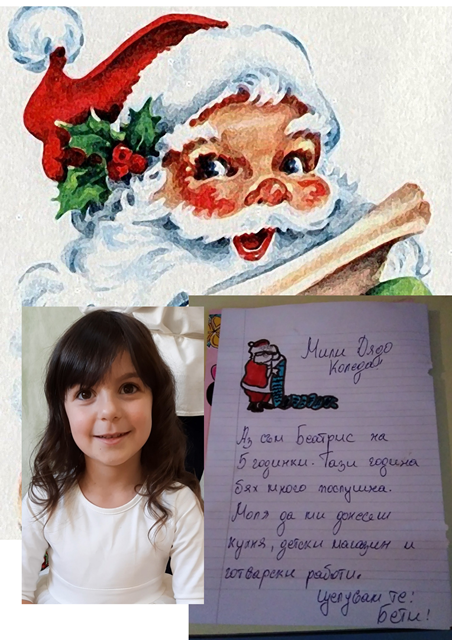 Мили Дядо
Коледа
Аз съм Беатрис на
5 годинки. Тази година
бях много послушна.
Моля да ми донесеш
кухня, детски магазин и
готварски работи.
Целувам те!
Бети!